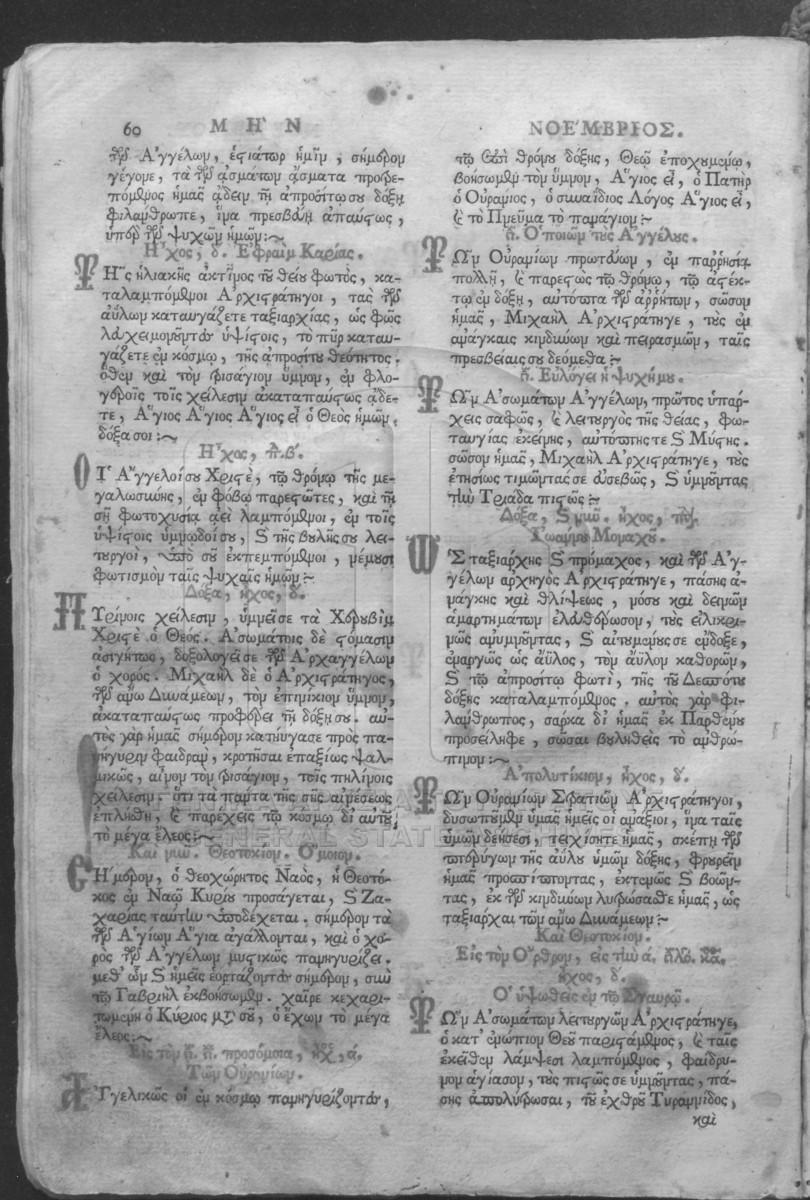 60 ΜΗ῍Ν
τῶν Ἀγγέλων, ἑστιάτωρ ἡμῖν, σήμερον
γέγονε, τὰ τῶν ᾀσμάτων ᾄσματα προτρε-
πόμενος ἡμᾶς ᾄδειν τῇ ἀπροσίτῳ σου δόξῃ
φιλάνθρωπε, ἵνα πρεσβεύῃ ἀπαύστως,
ὑπὲρ τῶν ψυχῶν ἡμῶν:~
Ἦχος, δ. Ἐφραὶμ Καρίας.
Τῆς ἡλιακῆς ἀκτῖνος τοῦ θείου φωτὸς, κα-
ταλαμπόμενοι Ἀρχιστράτηγοι, τὰς τῶν
ἀΰλων καταυγάζετε ταξιαρχίας, ὡς φῶς
λαχειμονοῦνται ὑψίστοις, τὸ πῦρ καταυ-
γάζετε ἐν κόσμῳ, τῆς ἀπροσίτου θεότητος.
ὅθεν καὶ τὸν τρισάγιον ὕμνον, ἐν φλο-
γεροῖς τοῖς χείλεσιν ἀκαταπαύστως ᾄδε-
τε, Ἅγιος Ἅγιος Ἅγιος εἶ ὁ Θεὸς ἡμῶν,
δόξα σοι:~
Ἦχος, πλ. β.
Οἱ Ἄγγελοί σου Χριστὲ, τῷ θρόνῳ τῆς με-
γαλωσύνης, ἐν φόβῳ παρεστῶτες, καὶ τῇ
σῇ φωτοχυσίᾳ ἀεὶ λαμπόμενοι, ἐν τοῖς
ὑψίστοις ὑμνῳδοί σου, καὶ τῆς βουλῆς σου λει-
τουργοὶ, ὑπὸ σοῦ ἐκπεμπόμενοι, νέμουσι
φωτισμὸν ταῖς ψυχαῖς ἡμῶν:~
Δόξα, ἦχος, δ.
Πυρίνοις χείλεσιν, ὑμνεῖ σε τὰ Χερουβὶμ
Χριστὲ ὁ Θεός. Ἀσωμάτοις δὲ στόμασιν
ἀσιγήτως, δοξολογεῖ σε τῶν Ἀρχαγγέλων
ὁ χορός. Μιχαὴλ δὲ ὁ Ἀρχιστράτηγος,
τῶν ἄνω Δυνάμεων, τὸν ἐπινίκιον ὕμνον,
ἀκαταπαύστως προσφέρει τῇ δόξῃ σου. αὐ-
τὸς γὰρ ἡμᾶς σήμερον κατηύγασε πρὸς πα-
νήγυριν φαιδρὰν, κροτῆσαι ἐπαξίως ψαλ-
μικῶς, αἶνον τὸν τρισάγιον, τοῖς πηλίνοις
χείλεσιν. ὅτι τὰ πάντα τῆς σῆς αἰνέσεως
ἐπλήσθη, καὶ παρέχεις τῷ κόσμῳ δι' αὐτοῦ
τὸ μέγα ἔλεος:~
Καὶ νῦν. Θεοτοκίον. Ὅμοιον.
Σήμερον, ὁ θεοχώρητος Ναὸς, ἡ Θεοτό-
κος ἐν Ναῷ Κυρίου προσάγεται, καὶ Ζα-
χαρίας ταύτην ὑποδέχεται. σήμερον τὰ
τῶν Ἁγίων Ἅγια ἀγάλλονται, καὶ ὁ χο-
ρὸς τῶν Ἀγγέλων μυστικῶς πανηγυρίζει.
μεθ' ὧν καὶ ἡμεῖς ἑορτάζοντες σήμερον, σὺν
τῷ Γαβριὴλ ἐκβοήσωμεν. χαῖρε κεχαρι-
τωμένη ὁ Κύριος μετὰ σοῦ, ὁ ἔχων τὸ μέγα
ἔλεος:~
Εἰς τὸν στ. στ. προσόμοια, ἦχ, ά.
Τῶν Οὐρανίων.
Ἀγγελικῶς οἱ ἐν κόσμῳ πανηγυρίζοντες,
ΝΟΕ΄ΜΒΡΙΟΣ.
τῷ ἐπὶ θρόνου δόξης, Θεῷ ἐποχουμένῳ,
βοήσωμεν τὸν ὕμνον, Ἅγιος εἶ, ὁ Πατὴρ
ὁ Οὐράνιος, ὁ συναΐδιος Λόγος Ἅγιος εἶ,
καὶ τὸ Πνεῦμα τὸ πανάγιον:~
στ. Ὁ ποιῶν τοὺς Ἀγγέλους.
Τῶν Οὐρανίων πρωτεύων, ἐν παῤῥησίᾳ
πολλῇ, καὶ παρεστὼς τῷ θρόνῳ, τῷ ἀστέκ-
τῳ ἐν δόξῃ, αὐτόπτα τῶν ἀῤῥήτων, σῶσον
ἡμᾶς, Μιχαὴλ Ἀρχιστράτηγε, τοὺς ἐν
ἀνάγκαις κινδύνων καὶ πειρασμῶν, ταῖς
πρεσβείαις σου δεόμεθα:~
στ. Εὐλόγει ἡ ψυχή μου.
Τῶν Ἀσωμάτων Ἀγγέλων, πρῶτος ὑπάρ-
χεις σαφῶς, καὶ λειτουργὸς τῆς θείας, φω-
ταυγίας ἐκείνης, αὐτόπτης τε καὶ Μύστης.
σῶσον ἡμᾶς, Μιχαὴλ Ἀρχιστράτηγε, τοὺς
ἐτησίως τιμῶντάς σε εὐσεβῶς, καὶ ὑμνοῦντας
τὴν Τριάδα πιστῶς:~
Δόξα, καὶ νῦν. ἦχος, πλ. δ.
Ἰωάννου Μοναχοῦ.
Ὡς ταξιάρχης καὶ πρόμαχος, καὶ τῶν Ἀγ-
γέλων ἀρχηγὸς Ἀρχιστράτηγε, πάσης ἀ-
νάγκης καὶ θλίψεως, νόσου καὶ δεινῶν
ἁμαρτημάτων ἐλευθέρωσον, τοὺς εἰλικρι-
νῶς ἀνυμνοῦντας, καὶ αἰτουμένους σε ἔνδοξε,
ἐναργῶς ὡς ἄϋλος, τὸν ἄϋλον καθορῶν,
καὶ τῷ ἀπροσίτῳ φωτὶ, τῆς τοῦ Δεσπότου
δόξης καταλαμπόμενος. αὐτὸς γὰρ φι-
λανθρώπως, σάρκα δι' ἡμᾶς ἐκ Παρθένου
προσείληφε, σῶσαι βουληθεὶς τὸ ἀνθρώ-
πινον:~
Ἀπολυτίκιον, ἦχος, δ.
Τῶν Οὐρανίων Στρατιῶν Ἀρχιστράτηγοι,
δυσωποῦμεν ὑμᾶς ἡμεῖς οἱ ἀνάξιοι, ἵνα ταῖς
ὑμῶν δεήσεσι, τειχίσητε ἡμᾶς, σκέπῃ τῶν
πτερύγων τῆς ἀΰλου ὑμῶν δόξης, φρουρεῖν
ἡμᾶς προσπίπτοντας, ἐκτενῶς καὶ βοῶν-
τας, ἐκ τῶν κινδύνων λυτρώσασθε ἡμᾶς, ὡς
ταξιάρχαι τῶν ἄνω Δυνάμεων:~
Καὶ Θεοτοκίον.
Εἰς τὸν Ὄρθρον, εἰς τὴν ά.
ἦχος, δ.
Ὁ ὑψωθεὶς ἐν τῷ Σταυρῷ.
Τῶν Ἀσωμάτων λειτουργῶν Ἀρχιστράτηγε,
ὁ κατ' ἐνώπιον Θεοῦ παριστάμενος, καὶ ταῖς
ἐκεῖθεν λάμψεσι λαμπόμενος, φαίδρυ-
νον ἁγίασον, τοὺς πιστῶς σε ὑμνοῦντας, πά-
σης ἀπολύτρωσαι, τοῦ ἐχθροῦ Τυραννίδος,
καὶ